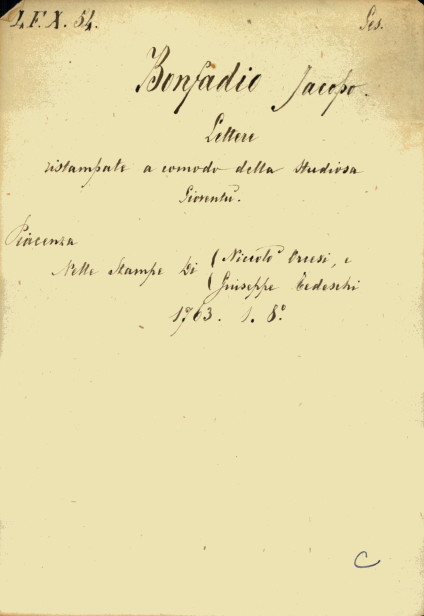 4. F. X. 54.
Ges.
Bonfadio Jacopo.
Lettere
ristampate a comodo della studiosa
Gioventù.
Piacenza
Nelle Stampe Di ( Niccolò Orcesi, e
( Giuseppe Tedeschi
1763. 1. 8º
C